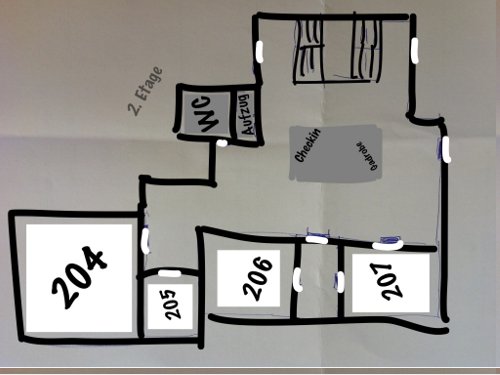 2. Etage
WC
Aufzug
Checkin
Gadrobe
204
205
206
207